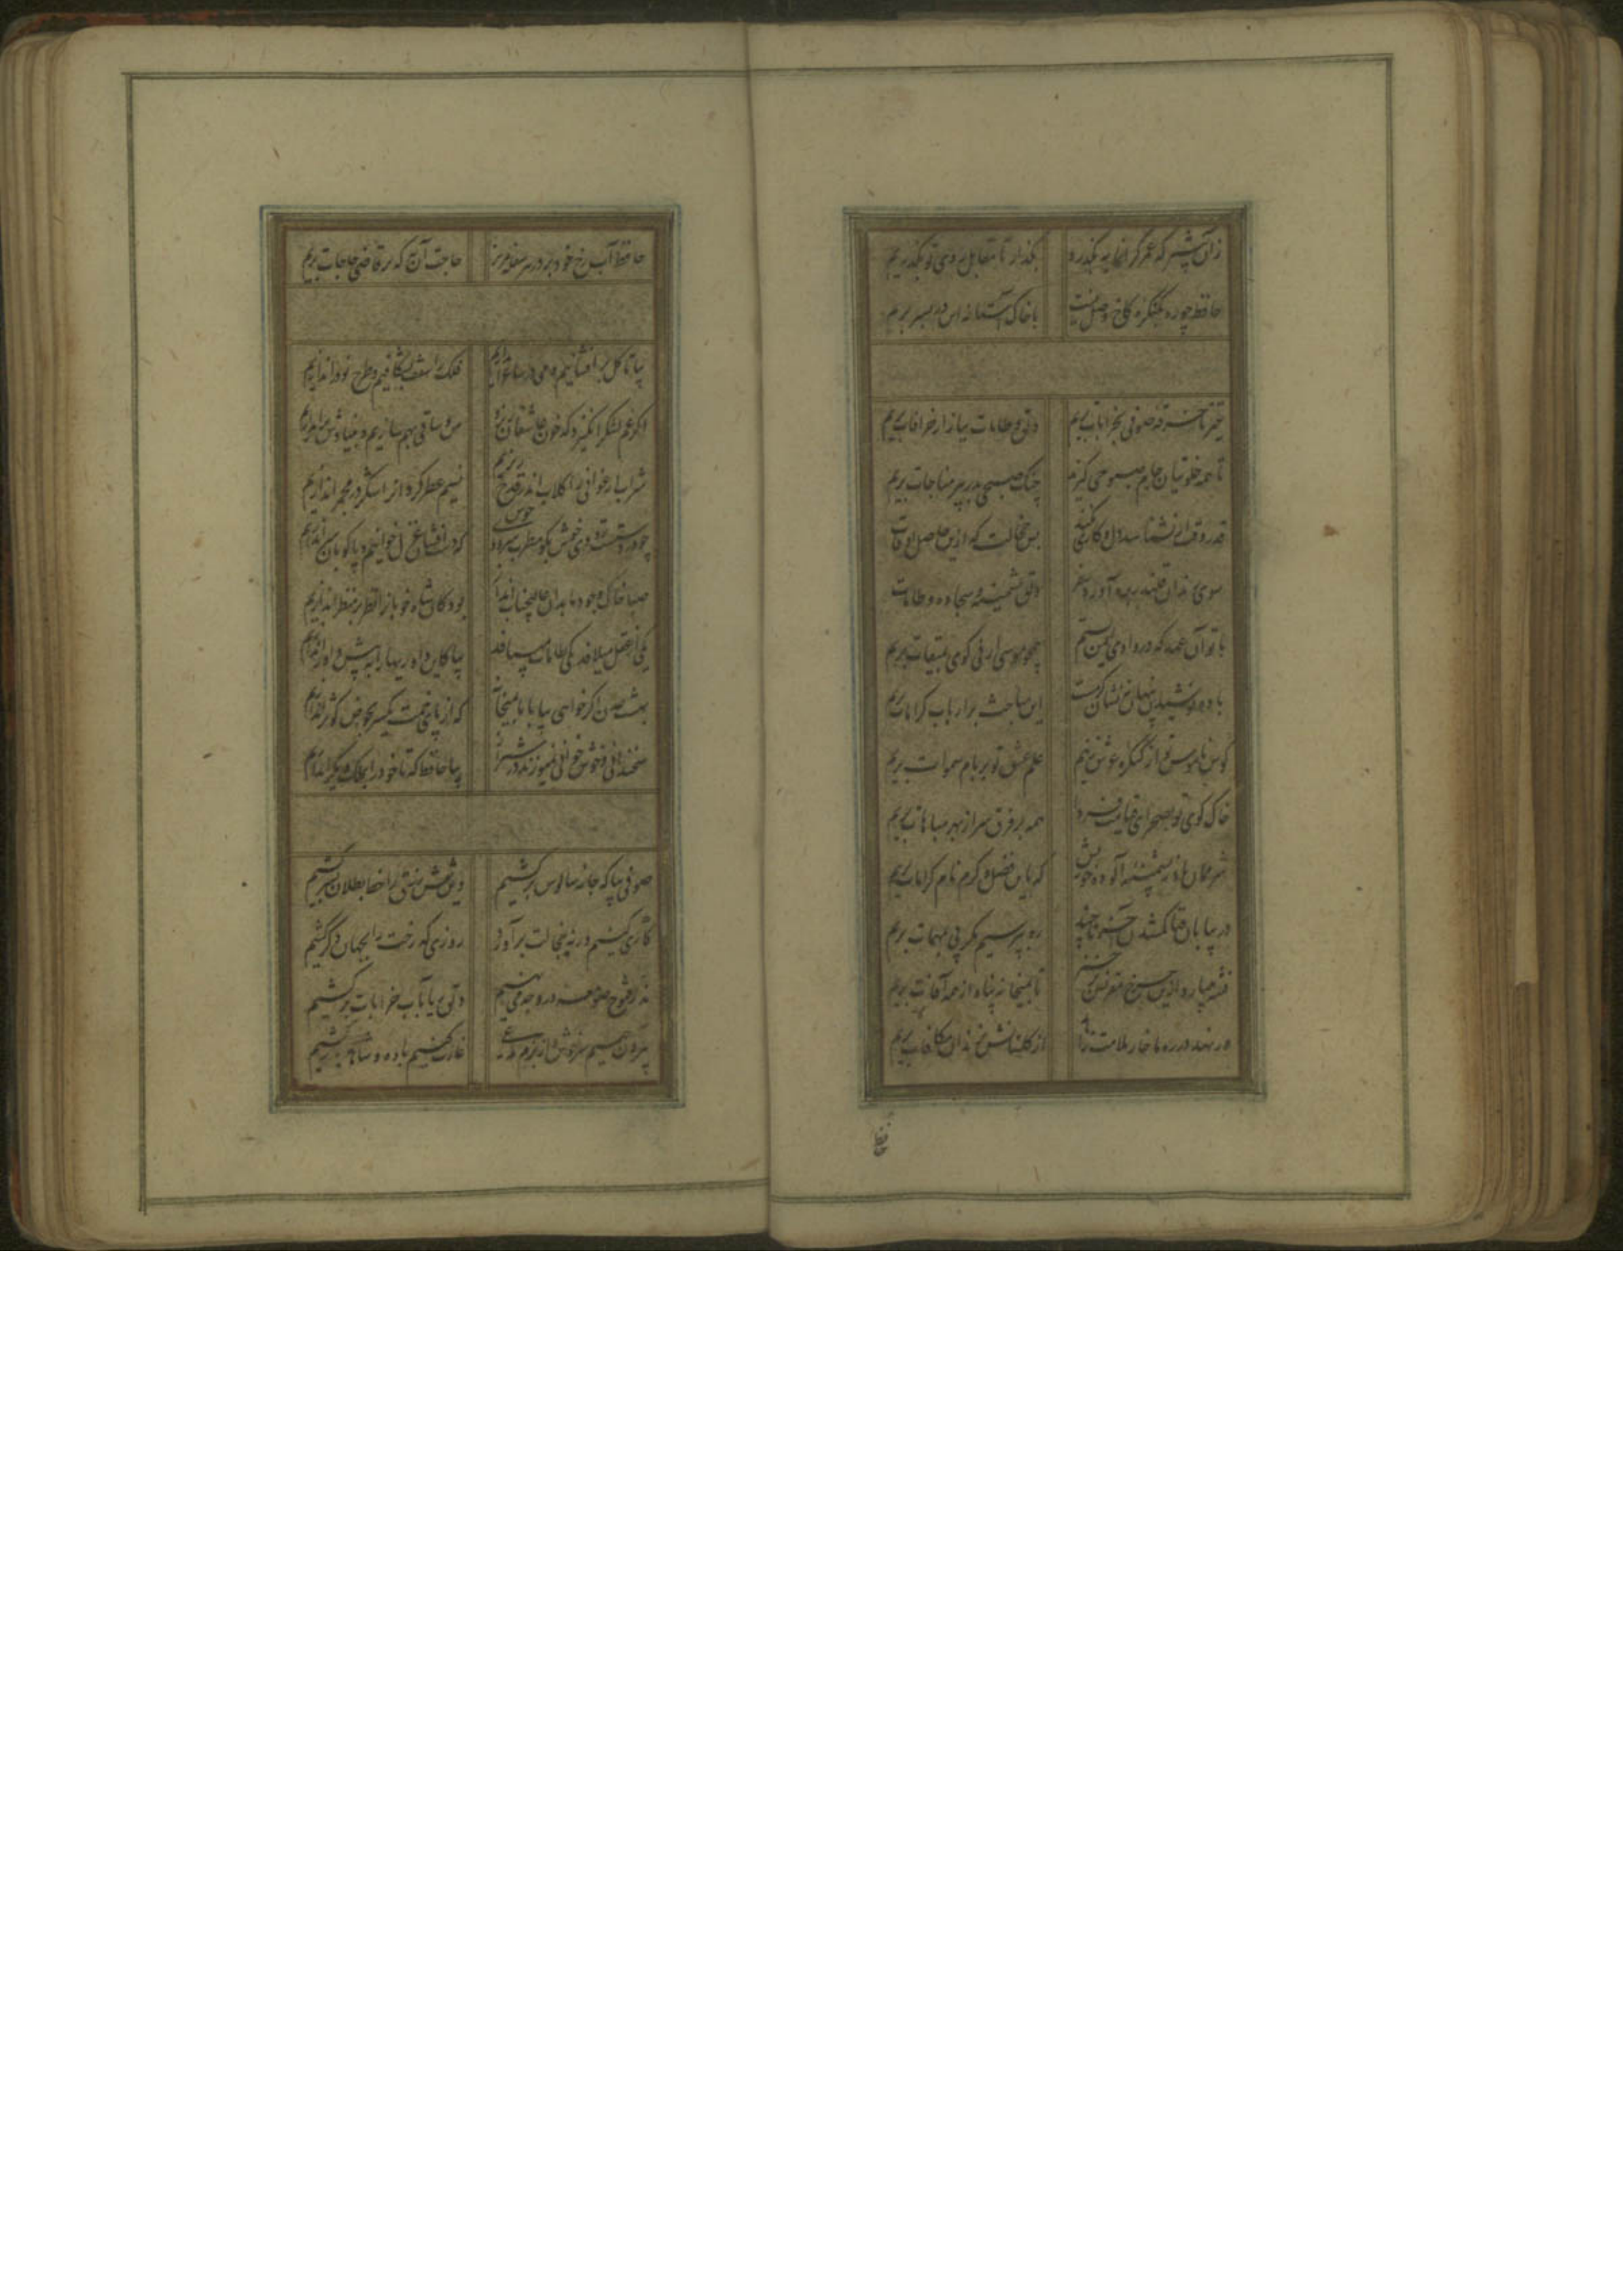 زان پیشتر که عمر گرانمایه بگذرد بگذار تا مقابل روی تو بگذریم
حافظ چو ره بکنگره کاخ وصل نیست با خاک آستانه این در بسر بریم
خیز تا خرقه صوفی بخرابات بریم دلق و طامات ببازار خرافات بریم
تا همه خلوتیان جام صبوحی گیرند چنگ صبحی بدر پیر مناجات بریم
قدر وقت ار نشناسد دل و کاری نکند بس خجالت که ازین حاصل اوقات
سوی رندان قلندر بره آورد سفر دلق پشمینه و سجاده و طامات
با تو آن عهد که در وادی ایمن بستیم همچو موسی ارنی گوی بمیقات بریم
باده نوشیدن پنهان نه نشان کرمست این مباحث بر ارباب کرامات بریم
کوس ناموس تو از کنگره عرش زنیم علم عشق تو بر بام سموات بریم
خاک کوی تو بصحرای قیامت فردا همه بر فرق سر از بهر مباهات بریم
شرممان باد ز پشمینه آلوده خویش که باین فضل و کرم نام کرامات بریم
در بیابان فنا گمشدن آخر تا چند ره بپرسیم مگر پی بمهمات بریم
فتنه میبارد ازین سقف مقرنس برخیز تا بمیخانه پناه از همه آفات بریم
ور نهد در ره ما خار ملامت زاهد از گلستانش بزندان مکافات بریم
حافظ
حافظ آب رخ خود بر در هر سفله مریز حاجت آن به که بر قاضی حاجات بریم
بیا تا گل برافشانیم و می در ساغر اندازیم فلک را سقف بشکافیم و طرح نو در اندازیم
اگر غم لشکر انگیزد که خون عاشقان ریزد من و ساقی بهم سازیم و بنیادش براندازیم
شراب ارغوانی را گلاب اندر قدح ریزیم نسیم عطرگردان را شکر در مجمر اندازیم
چو در دستست رودی خوش بگو مطرب سرودی خوش که دست افشان غزل خوانیم و پاکوبان سر اندازیم
صبا خاک وجود ما بدان عالیجناب انداز بود کان شاه خوبان را نظر بر منظر اندازیم
یکی از عقل میلافد یکی طامات میبافد بیا کاین داوریها را به پیش داور اندازیم
بهشت عدن اگر خواهی بیا با ما بمیخانه که از پای خمت یکسر بحوض کوثر اندازیم
سخندانی و خوش خوانی نمیورزند در شیراز بیا حافظ که تا خود را بملک دیگر اندازیم
صوفی بیا که جامه سالوس برکشیم وین نقش زرق را خط بطلان بسر کشیم
کاری کنیم ورنه خجالت برآورد روزی که رخت را بجهان دگر کشیم
نذر و فتوح صومعه در وجه می نهیم دلق ریا بآب خرابات برکشیم
بیرون جهیم سرخوش و از بزم مدعی غارت کنیم باده و شاهد ببر کشیم